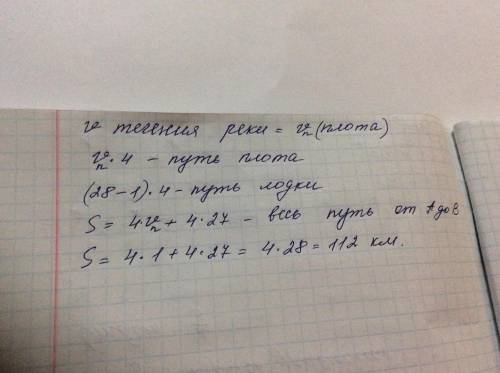 v течения реки = vп (плота)
vп · 4 – путь плота
(28–1) · 4 – путь лодки
S = 4 · vп + 4 · 27 – весь путь от A до B
S = 4 · 1 + 4 · 27 = 4 · 28 = 112 км.